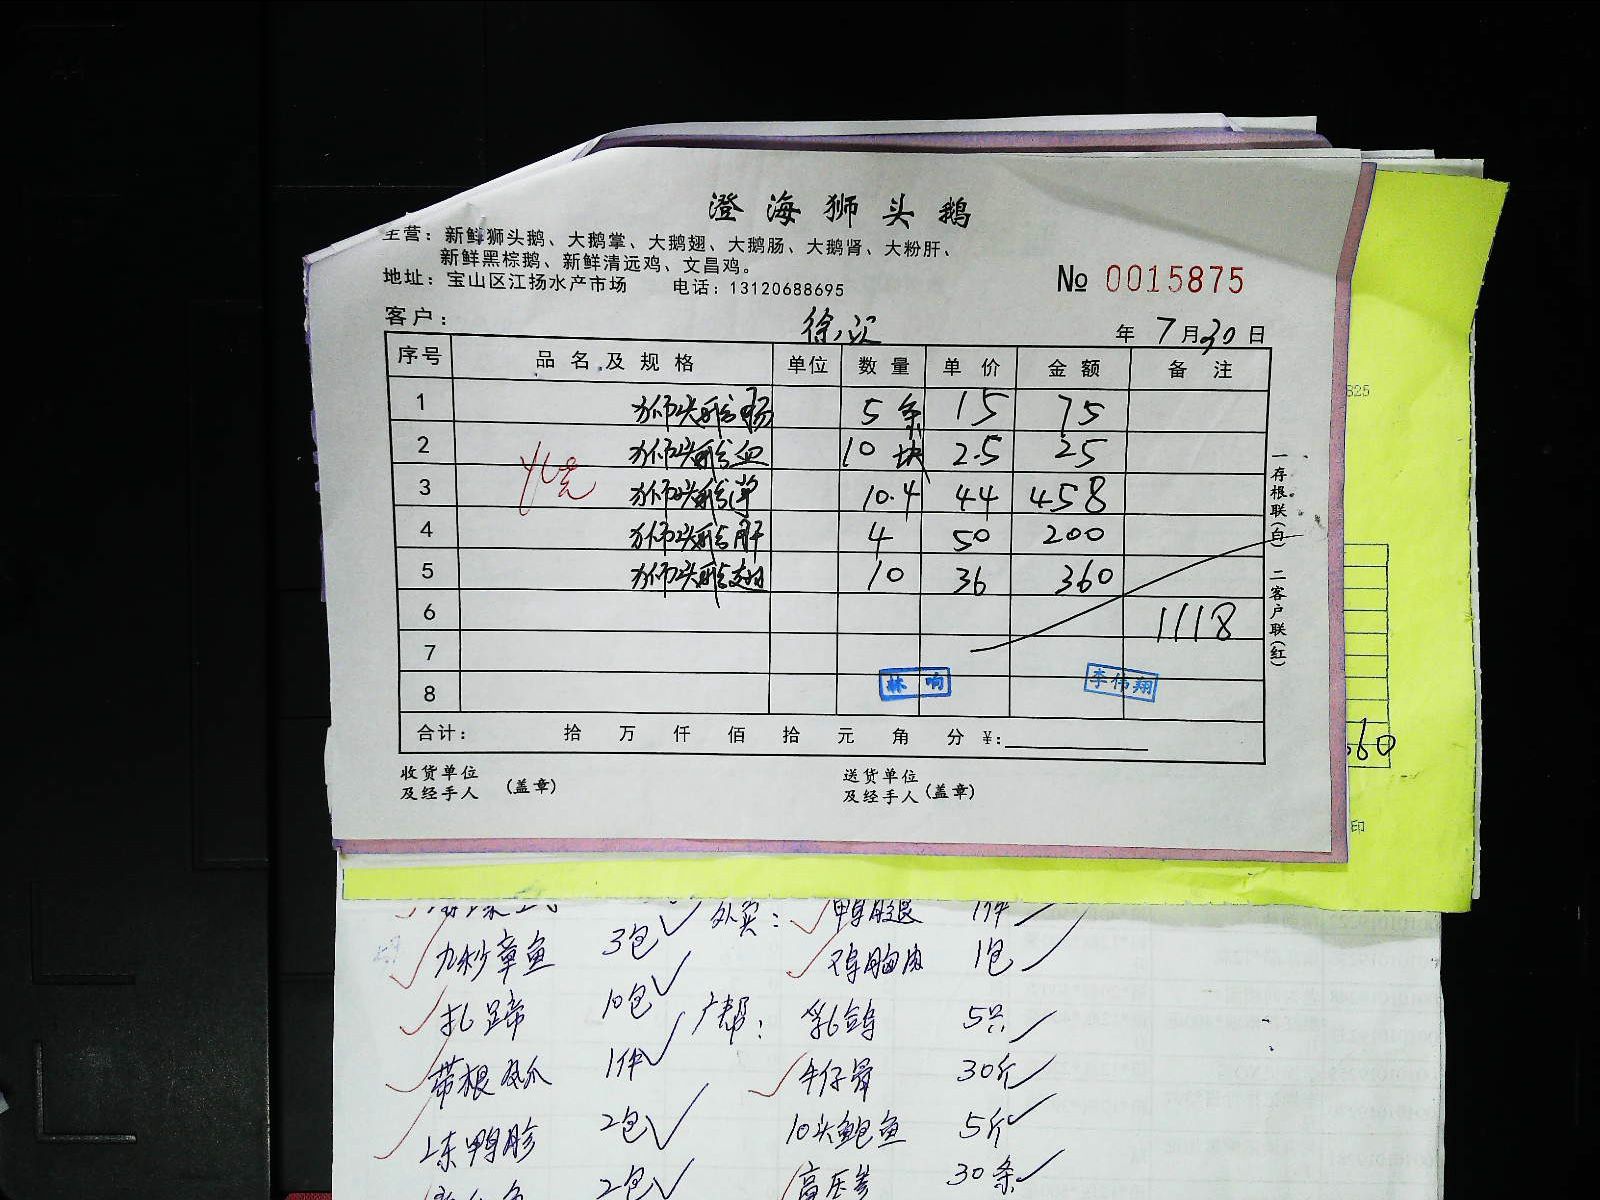 澄海狮头鹅
主营：新鲜狮头鹅、大鹅掌、大鹅翅、大鹅肠、大鹅肾、大粉肝、
新鲜黑棕鹅、新鲜清远鸡、文昌鸡。
地址：宝山区江扬水产市场 电话：13120688695
№ 0015875
客户： 徐汇 年 7月30日
序号 品名及规格 单位 数量 单价 金额 备注
1 狮头鹅肠 5条 15 75
2 狮头鹅血 10块 2.5 25
3 狮头鹅 10.4 44 458
4 狮头鹅肝 4 50 200
5 狮头鹅翅 10 36 360
6 1118
7
8
林响 李伟翔
合计： 拾 万 仟 佰 拾 元 角 分 ¥:
收货单位 送货单位
及经手人 (盖章) 及经手人 (盖章)
一存根联(白) 二客户联(红)
825
60
印
外卖： 鸭胸 1件
九秒章鱼 3包 鸡胸肉 1包
扎蹄 10包 广帮： 乳鸽 5只
带根凤爪 1件 牛仔骨 30斤
冻鸭胗 2包 10头鲍鱼 5斤
2包 高压参 30条